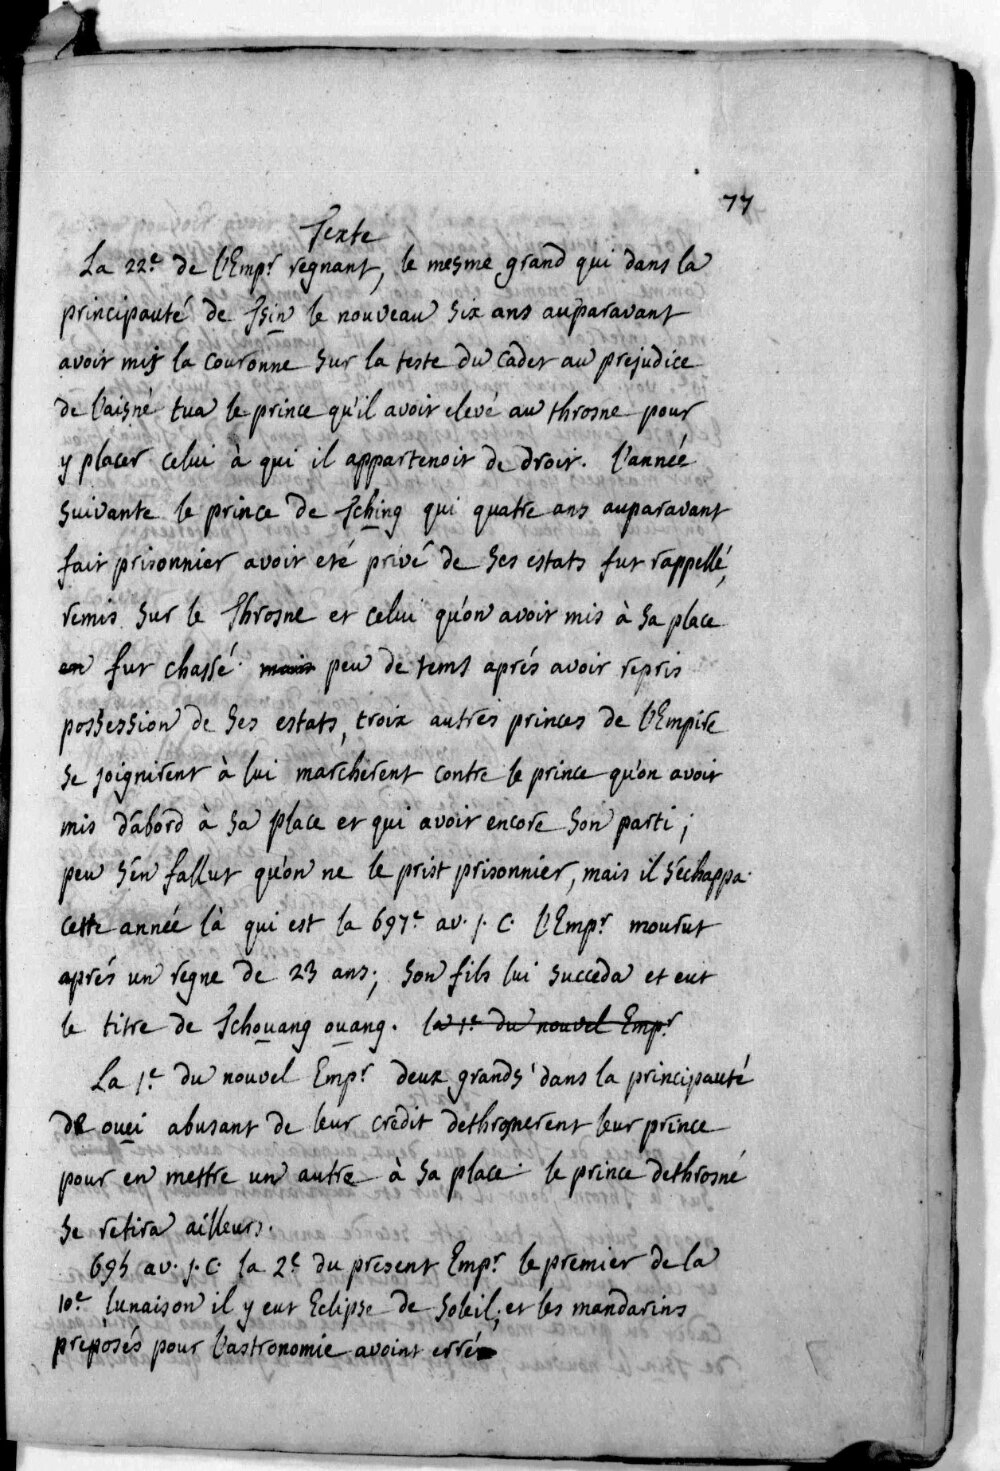 77
Texte
La 22.e de l'Emp.r regnant, le mesme grand qui dans la
principauté de Tsin le nouveau six ans auparavant
avoit mis la couronne sur la teste du cadet au prejudice
de l'aisné tua le prince qu'il avoit elevé au throsne pour
y placer celui à qui il appartenoit de droit. l'année
suivante le prince de Tching qui quatre ans auparavant
fait prisonnier avoit eté privé de ses estats fut rappellé,
remis sur le Throsne et celui qu'on avoit mis à sa place
en fut chassé. mais peu de tems aprés avoir repris
possession de ses estats, troix autres princes de l'Empire
se joignirent à lui marcherent contre le prince qu'on avoit
mis d'abord à sa place et qui avoit encore son parti;
peu s'en fallut qu'on ne le prist prisonnier, mais il s'échappa.
cette année là qui est la 697.e av. j. C. l'Emp.r mourut
aprés un regne de 23 ans; son fils lui succeda et eut
le titre de Tchouang ouang. la 1.e du nouvel Emp.r
La 1.e du nouvel Emp.r deux grands dans la principauté
de ouei abusant de leur credit dethronerent leur prince
pour en mettre un autre à sa place. le prince dethrosné
se retira ailleurs.
695 av. j. C. la 2.e du present Emp.r le premier de la
10.e lunaison il y eut Eclipse de soleil, et les mandarins
preposés pour l'astronomie avoint erré